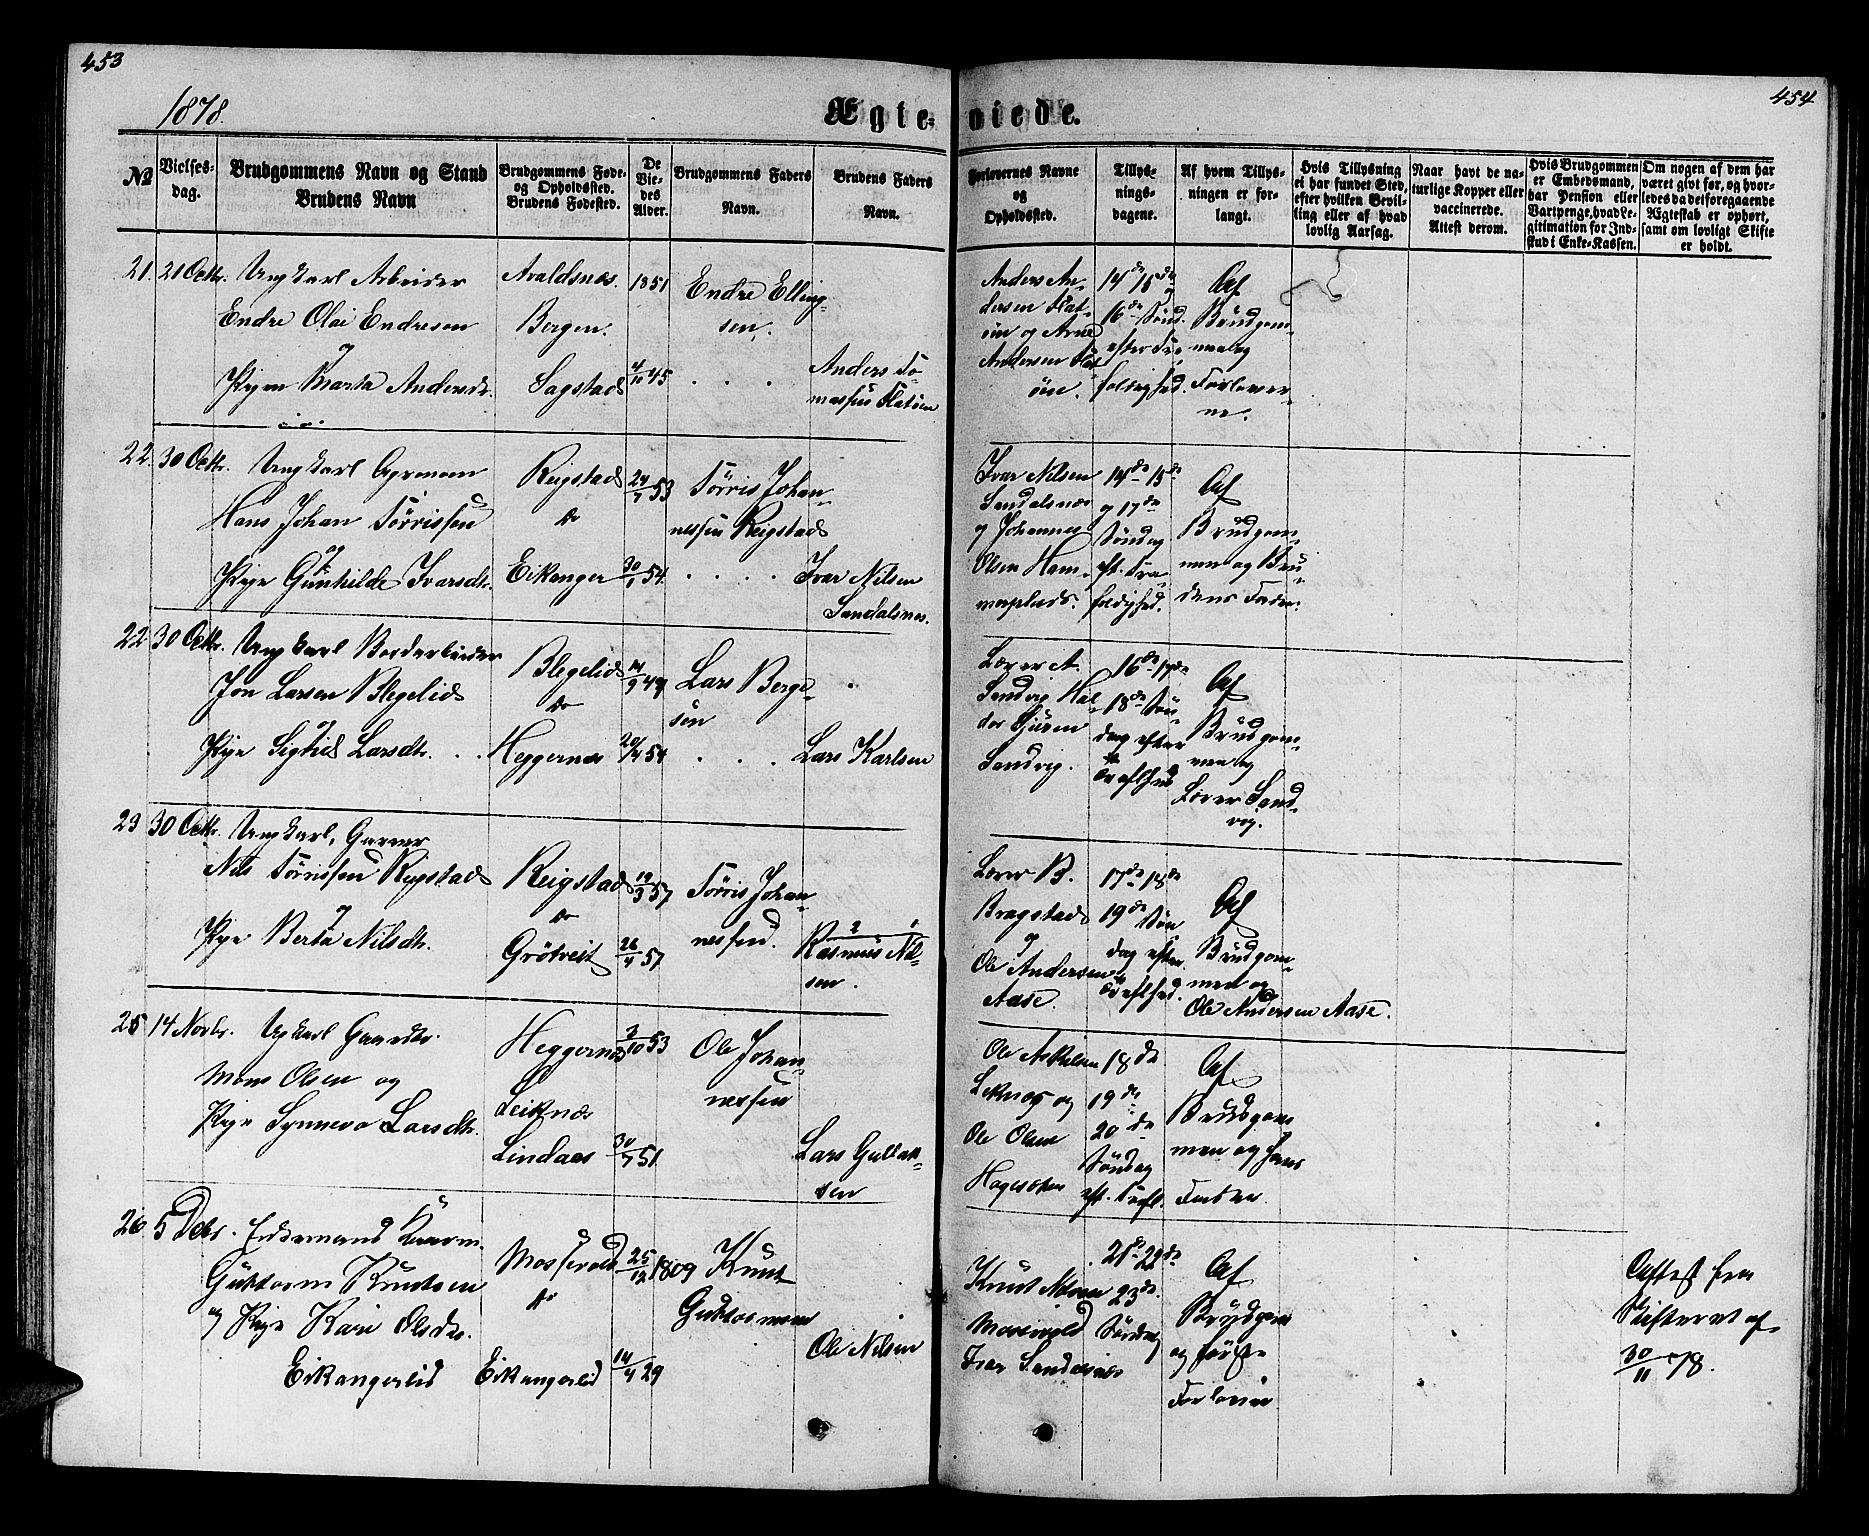 453
454
1878.
Ægte-
viede.
№
Vielses-
dag.
Brudgommens Navn og Stand
Brudens Navn
Brudgommens Føde-
og Opholdssted.
Brudens Fødested.
De
Vie-
des
Alder.
Brudgommens Faders
Navn.
Brudens Faders
Navn.
Forlovernes Navne
og
Opholdssted.
Tillys-
nings-
dagene.
Af hvem Tillys-
ningen er for-
langt.
Hvis Tillysning
ei har fundet Sted,
efter hvilken Bevil-
ling eller af hvad
lovlig Aarsag.
Naar havt de na-
turlige Kopper eller
vaccinerede.
Attest derom.
Hvis Brudgommen
er Embedsmand,
har Pension eller
Vartpenge, hvad Le-
gitimation for Ind-
skud i Enke-Kassen.
Om nogen af dem har
været givt før, og hvor-
ledes da det foregaaende
Ægteskab er ophørt,
samt om lovligt Skifte
er holdt.
21. 21 Octbr. Ungkarl Arbeider
Endre Olai Endresen
og
Pigen Marta Andersdr.
Avaldsnes.
Bergen.
Sagstad
1851
4/10 45
Endre Elling-
sen.
Anders To-
massen Flatøen
Anders An-
dersen Flat-
øen og Arne
Andersen Flat
øen.
14de 15de og
16de Sønd.
efter Tre-
foldighed.
Af
Brudgom-
men og
Forlover-
ne.
22. 30 Octbr. Ungkarl Gaardm
Hans Johan Tørrissen
og
Pige Gunhilde Ivarsdr.
Reigstad
do
Eikanger
24/7 53
30/1 54
Tørris Johan-
nessen Reigstad
Ivar Nilsen
Sandalsnes.
Ivar Nilsen
Sandalsnes
og Johannes
Olsen Ham-
mersplads.
14de 15de
og 17de
Søndag
eft. Tre-
foldighed.
Af
Brudgom-
men og Bru-
dens Fader.
22 30 Octbr. Ungkarl Bordarbeider
Jon Larsen Blegelid
og
Pige Sigtrid Larsdr.
Blegelid
do
Heggernes
14/9 49
20/4 54
Lars Berge-
sen
Lars Karlsen
Lærer A.
Sandvig Hal-
dor
Sandvig.
16de 17de
18de Søn-
dag efter
Trefhed
Af
Brudgom-
men og
Lærer Sand-
vig.
23 30 Octbr. Ungkarl, Garver
Nils Tørrissen Reigstad
og
Pige Berta Nilsdr.
Reigstad
do
Grøtveit
19/3 57
26/4 57
Tørris Johan-
nessen.
Rasmus Nil-
sen.
Lærer B.
Bragstad
og
Ole Andersen
Aase.
17de 18de
19de Søn
dag efter
Trefhed.
Af
Brudgom-
men og
Ole Andersen Aase.
25 14 Novbr. Ungkarl Gaardbr.
Mons Olsen og
Pige Synneva Larsdtr.
Heggernes
Leiknes
Lindaas
2/10 53
30/7 51
Ole Johan-
nessen
Lars Gullak-
sen
Ole Askelsen
Leknes og
Ole Olsen
18de
19de
20de
Søndag
eft. Trefl.
Af
Brudgom-
men og hans
Fader.
26 5 Debr. Enkemand Kaarm.
Guttorm Knutsen
og Pige Kari Olsdr.
Eikangerlid
Mossevold
do
Eikangerlid
25/12 1809
14/4 29
Knut
Guttormsen
Ole Nilsen
Knut Nilsen
Mosevold
Ivar Sandalsnes
21de 22de
23de
Søndag
Af
Brudgom
og første
Forlover
Attest fra
Skifteret af
30/11 78.